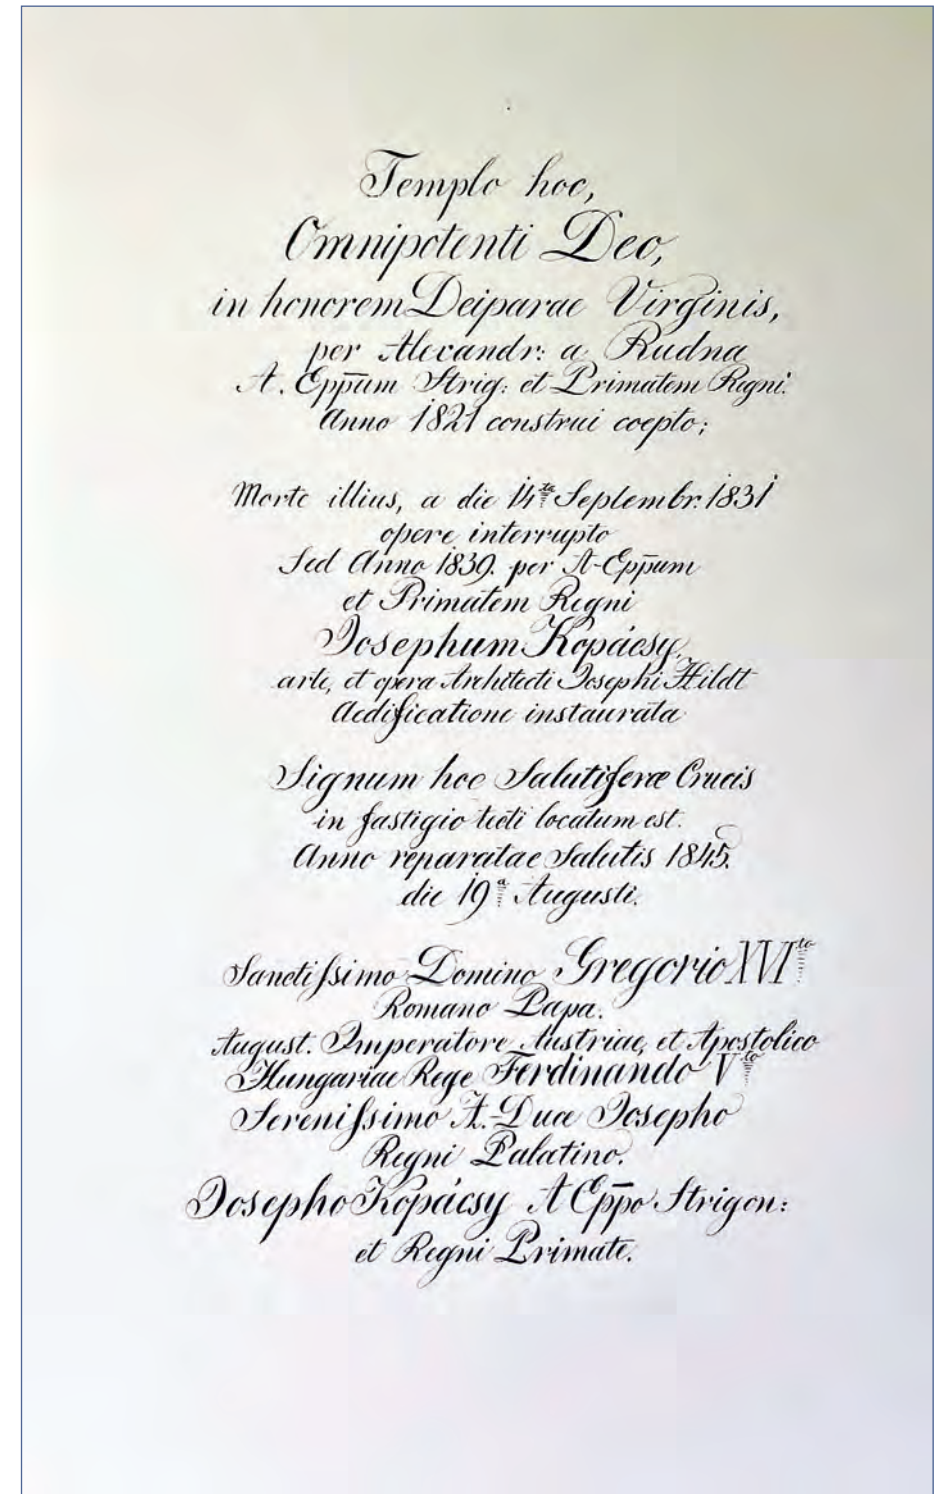 Templo hoc,
Omnipotenti Deo,
in honorem Deiparae Virginis,
per Alexandr: a Rudna
A. Epp̄um Strig: et Primatem Regni.
Anno 1821 construi coepto;
Morte illius, a die 14ta Septembr. 1831
opere interrupto
Sed Anno 1839. per A-Epp̄um
et Primatem Regni
Josephum Kopácsy,
arte, et opera Architecti Josephi Hildt
Aedificatione instaurata
Signum hoc Salutiferæ Crucis
in fastigio tecti locatum est.
Anno reparatae Salutis 1845.
die 19a Augusti.
Sanctiſsimo Domino Gregorio XVIto
Romano Papa.
August. Imperatore Austriae, et Apostolico
Hungariae Rege Ferdinando Vto
Sereniſsimo A.-Duce Josepho
Regni Palatino.
Josepho Kopácsy A Epp̄o Strigon:
et Regni Primate.